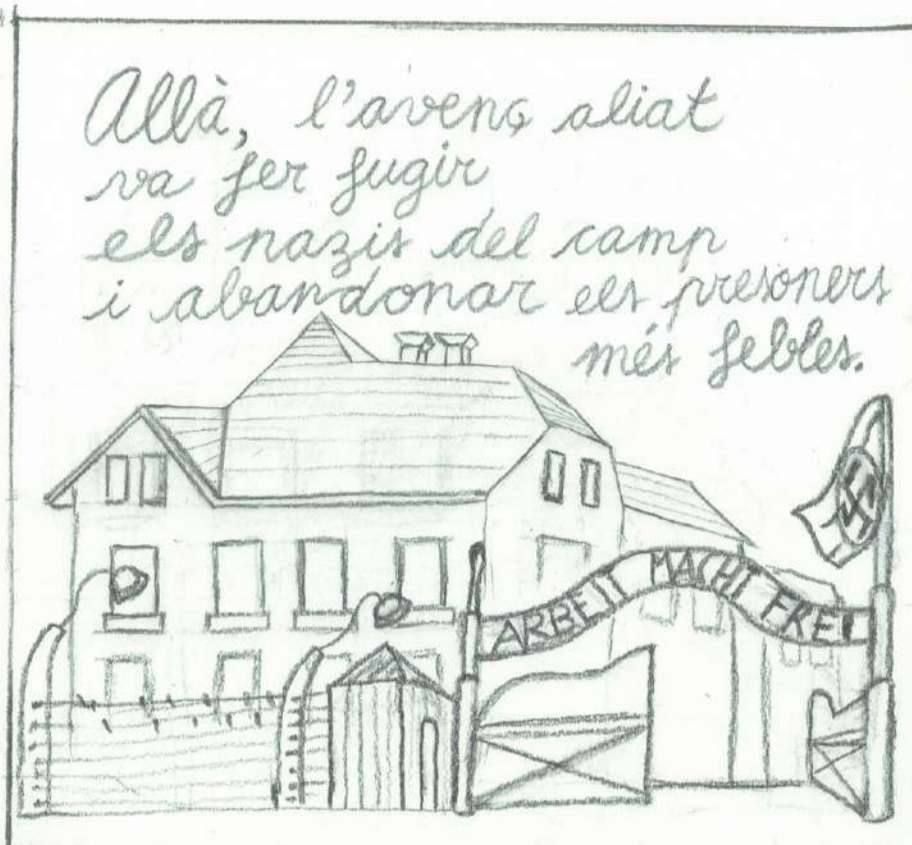 Allà, l'avenç aliat
va fer fugir
els nazis del camp
i abandonar els presoners
més febles.
ARBEIT MACHT FREI